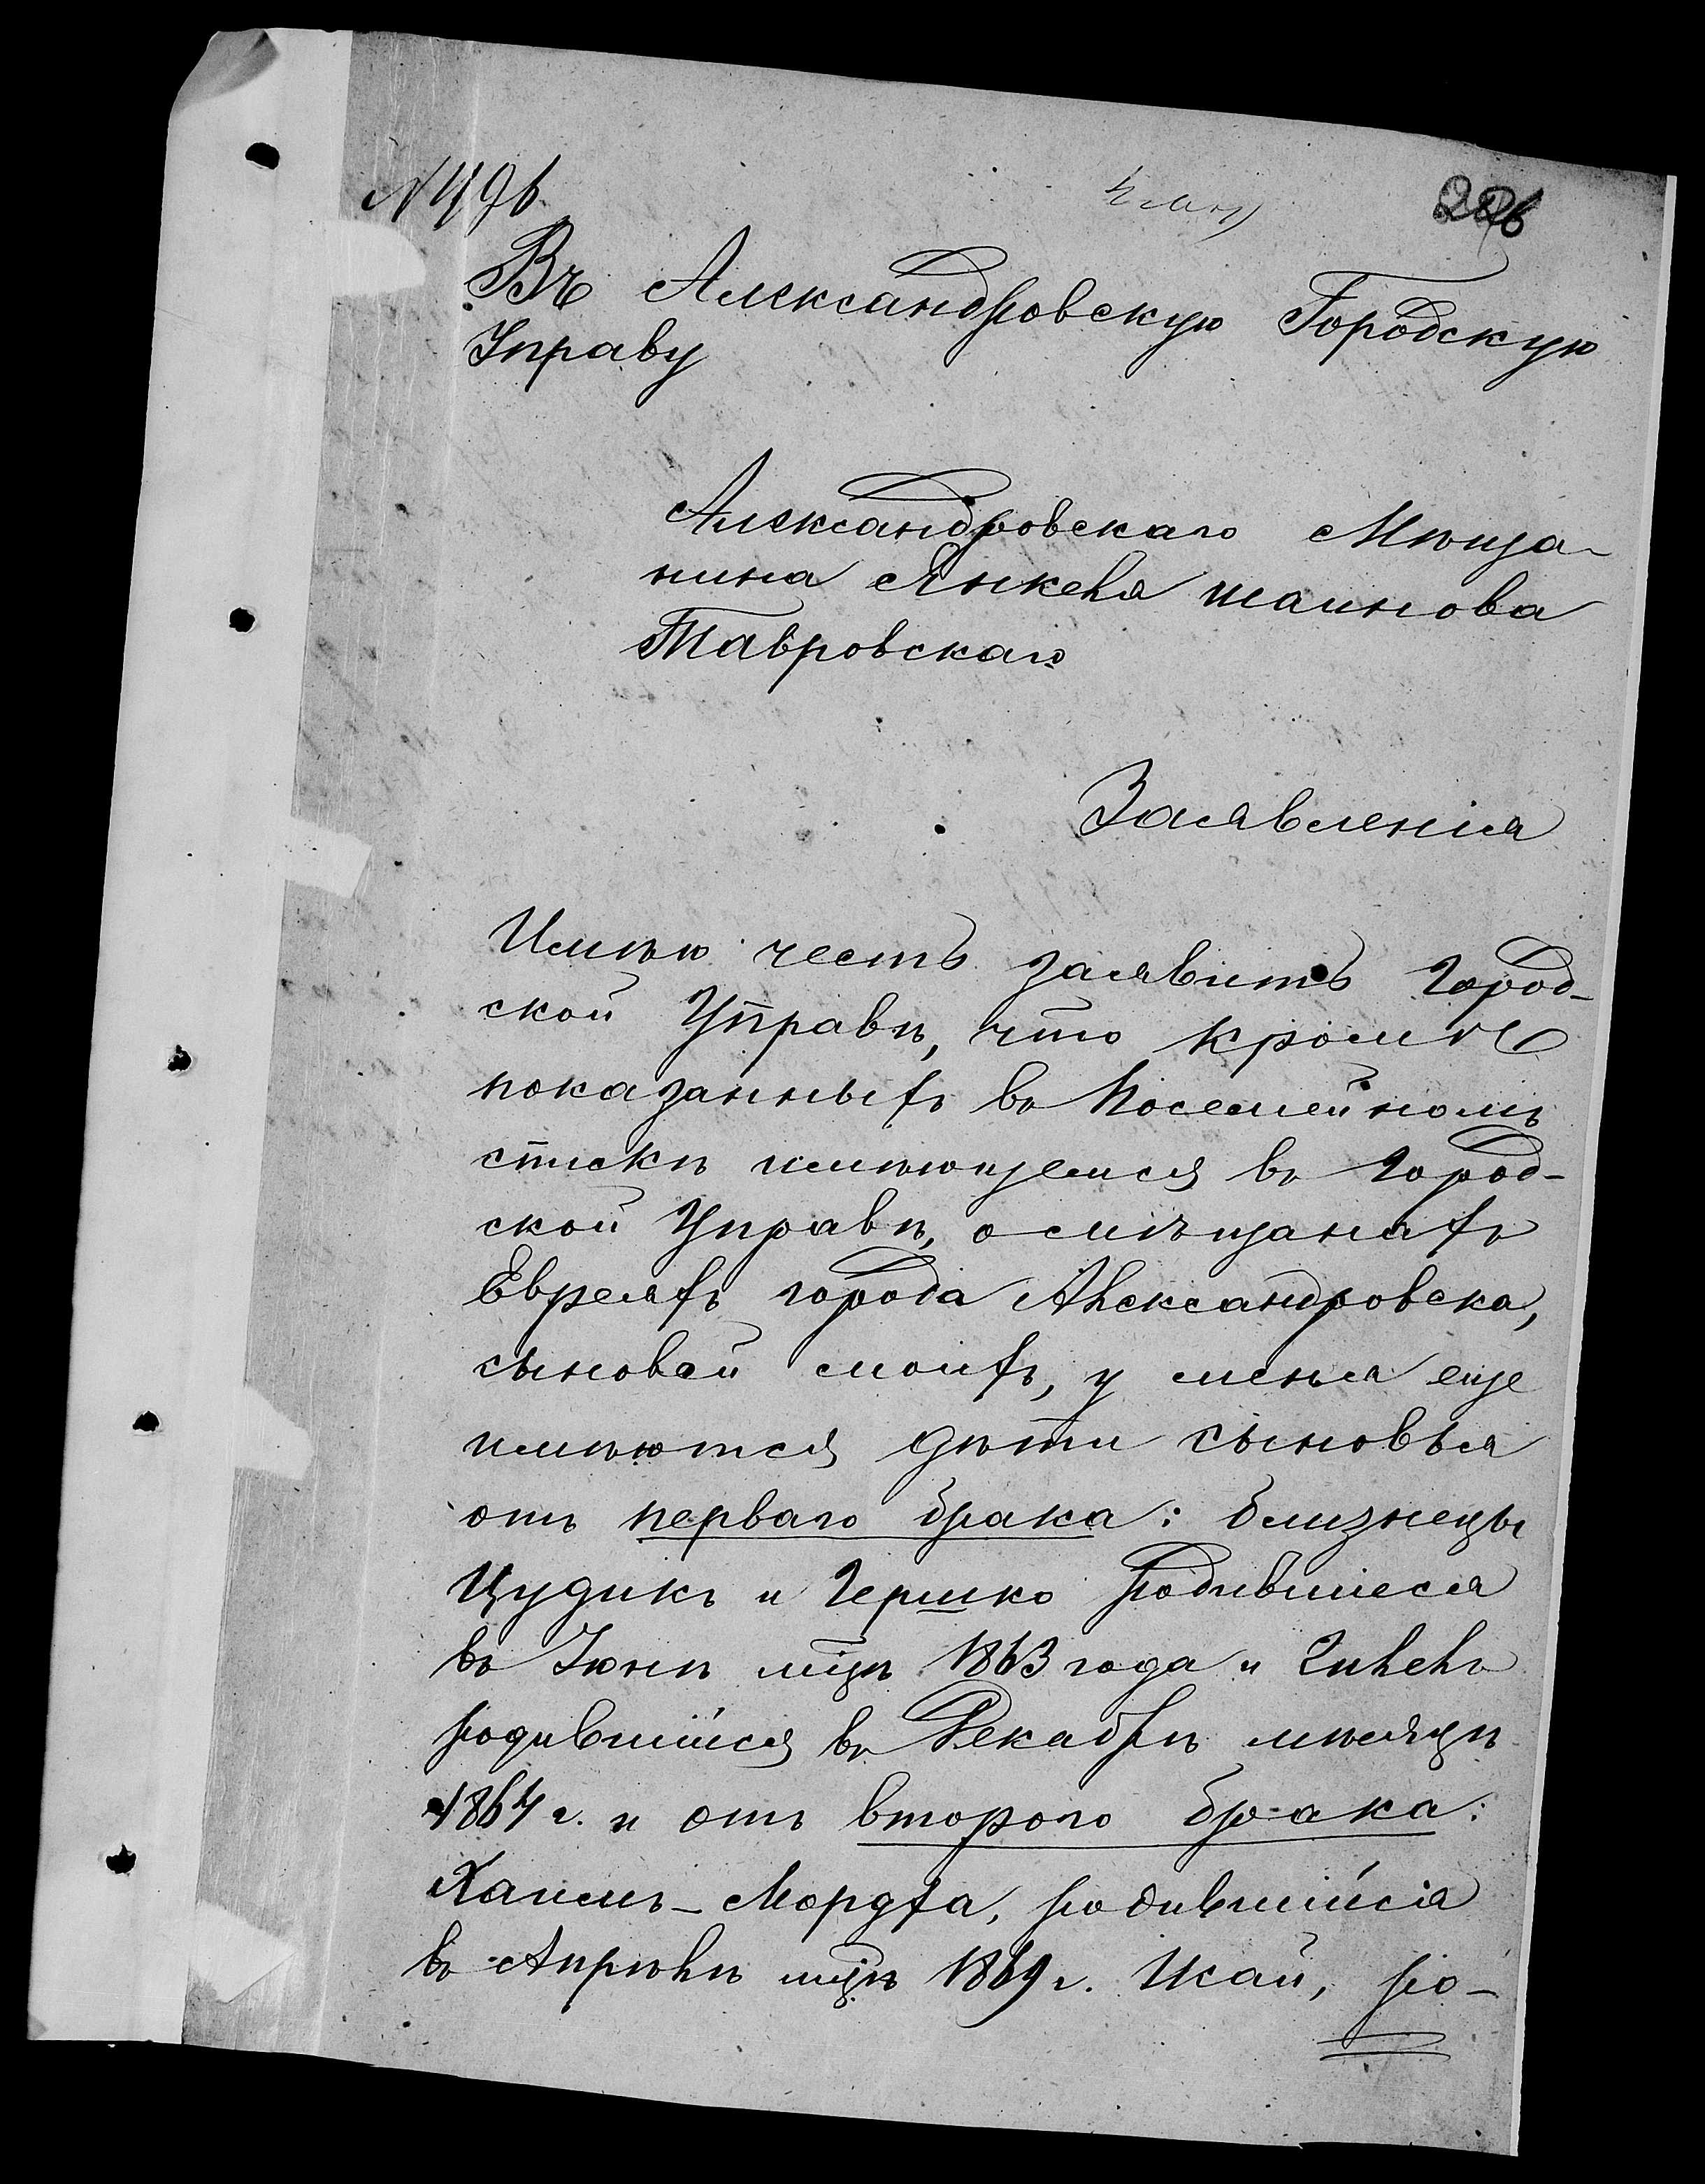 N 496
226
Въ Александровскую Городскую
Управу
Александровскаго Мѣща-
нина Янкеля
Тавровскаго
Заявленія
Имѣю честь заявить Город-
ской Управѣ, что кромѣ
показанныхъ въ Посемейномъ
спискѣ имѣющемся въ Город-
ской Управѣ, о мѣщанахъ
Евреяхъ города Александровска,
сыновей моихъ, у меня еще
имѣются дѣти сыновья
отъ перваго брака: близнецы
Цудикъ и Гершко родившіеся
въ Іюнѣ мцѣ 1863 года и
родившийся въ Декабрѣ мѣсяцѣ
1864 г. и отъ второго брака:
Хаимъ-Мордха, родившийся
въ Апрѣлѣ мцѣ 1869 г. Исай, ро-